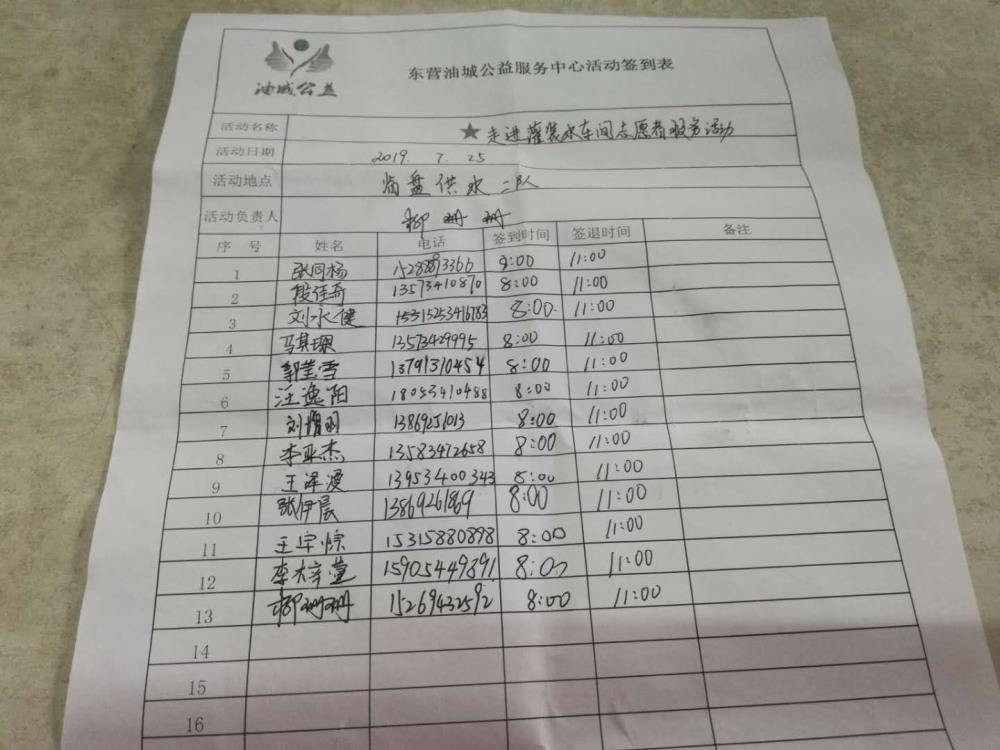 油城公益
东营油城公益服务中心活动签到表
活动名称 ★走进灌装水车间志愿者服务活动
活动日期 2019. 7. 25
活动地点 临盘供水二队
活动负责人 柳珊珊
序 号 姓名 电话 签到时间 签退时间 备注
1 张同杨 15288893366 8:00 11:00
2 段佳奇 13573410870 8:00 11:00
3 刘永健 8:00 11:00
4 马其璟 13573429995 8:00 11:00
5 郭莹雪 13791310454 8:00 11:00
6 汪逸阳 18053410488 8:00 11:00
7 13869251013 8:00 11:00
8 李亚杰 13583472658 8:00 11:00
9 王泽 13953400343 8:00 11:00
10 张伊晨 13869261869 8:00 11:00
11 王宇 15315880898 8:00 11:00
12 李 15905449891 8:00 11:00
13 柳珊珊 15269432592 8:00 11:00
14
15
16